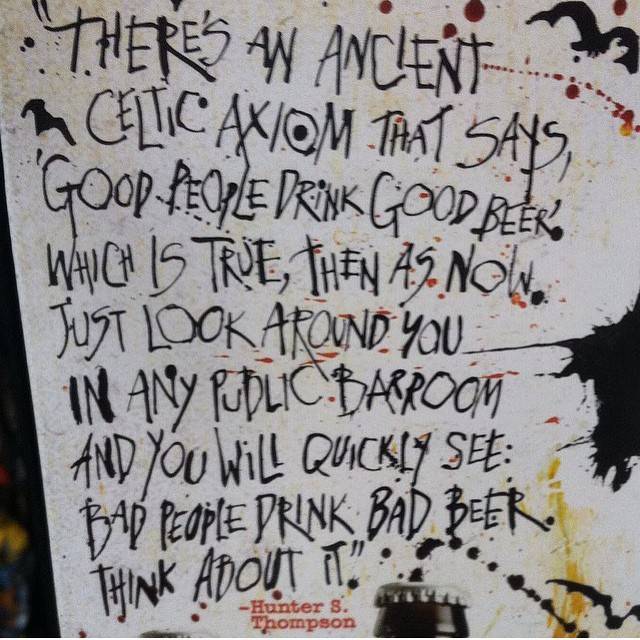 "THERE'S AN ANCIENT
CELTIC AXIOM THAT SAYS,
'GOOD PEOPLE DRINK GOOD BEER'.
WHICH IS TRUE, THEN AS NOW.
JUST LOOK AROUND YOU
IN ANY PUBLIC BARROOM
AND YOU WILL QUICKLY SEE:
BAD PEOPLE DRINK BAD BEER.
THINK ABOUT IT."
-Hunter S.
Thompson